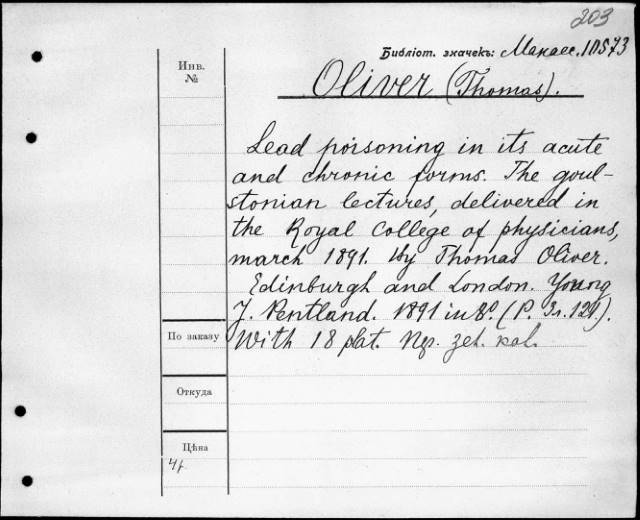 203
Библіот. значекъ: Макаес. 10573
Инв.
№
Oliver (Thomas).
Lead poisoning in its acute
and chronic forms. The goul-
stonian lectures, delivered in
the Royal College of physicians,
march 1891. by Thomas Oliver.
Edinburgh and London. Young
J. Pentland. 1891 in 8°. (P. 121).
With 18 plat.
По заказу
Откуда
Цѣна